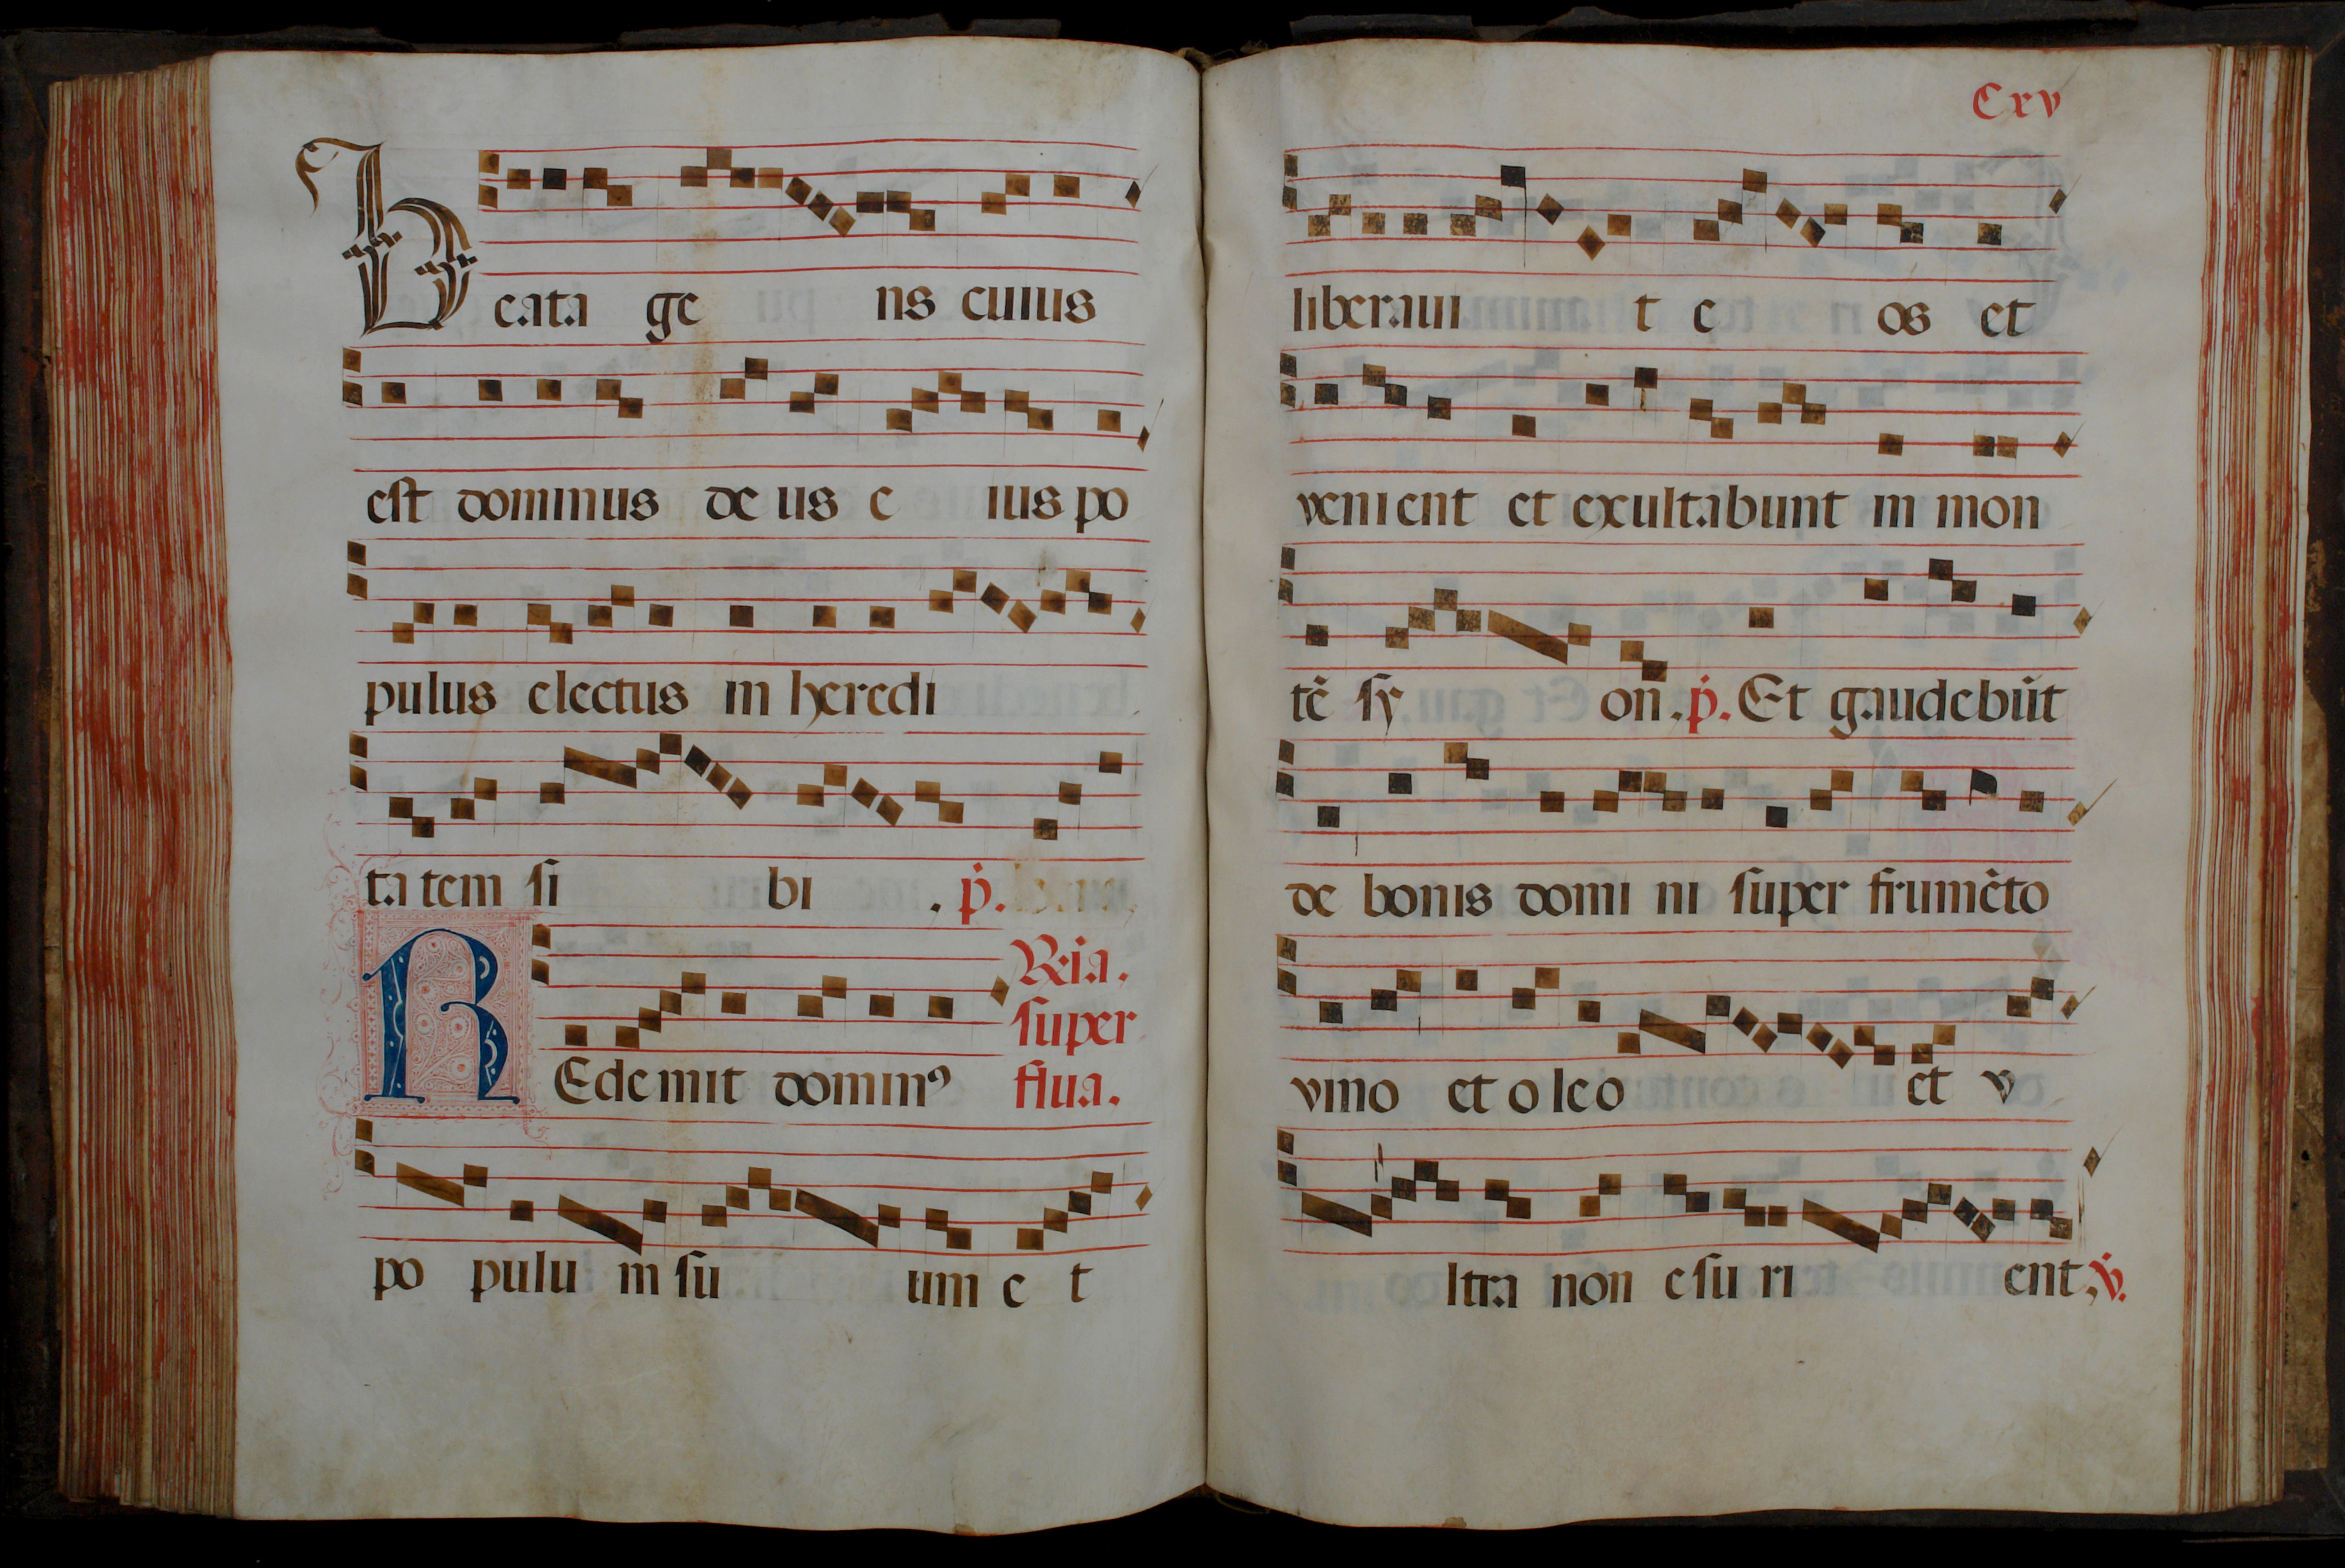 Beata ge ns cuius
est dominus de us e ius po
pulus electus in heredi
ta tem si bi . p.
REdemit dominꝰ
R᷒ia.
super
fiua.
po pulu m su um e t
Cxv
liberaui t e os et
venient et exultabunt in mon
tē sy on. p. Et gaudebūt
de bonis domi ni super frumēto
vino et o leo et v
ltra non esu ri ent, v.